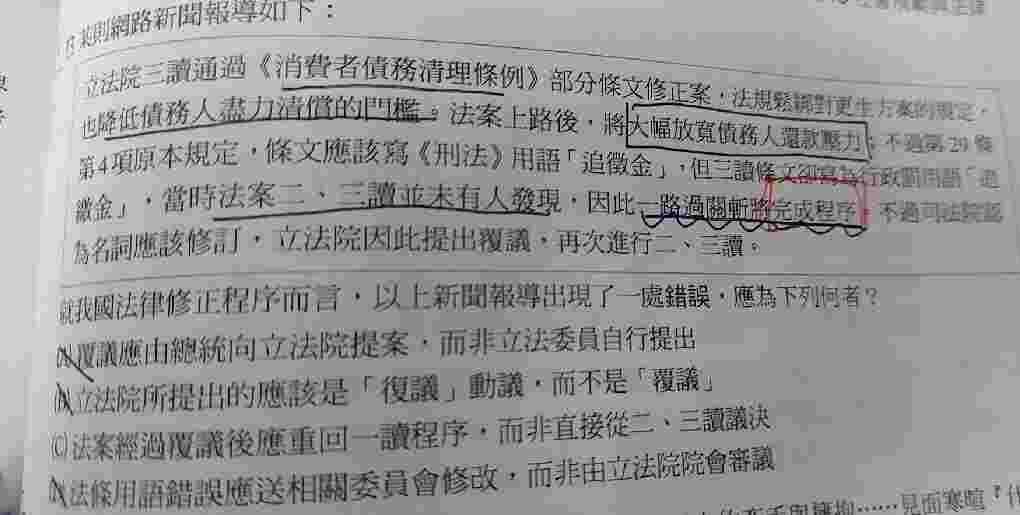 某則網路新聞報導如下：
立法院三讀通過《消費者債務清理條例》部分條文修正案，法規鬆綁對更生方案的規定，
也降低債務人盡力清償的門檻。法案上路後，將大幅放寬債務人還款壓力；不過第29條
第4項原本規定，條文應該寫《刑法》用語「追徵金」，但三讀條文卻寫為行政罰用語「追
繳金」，當時法案二、三讀並未有人發現，因此一路過關斬將完成程序。不過司法院認
為名詞應該修訂，立法院因此提出覆議，再次進行二、三讀。
就我國法律修正程序而言，以上新聞報導出現了一處錯誤，應為下列何者？
(A)覆議應由總統向立法院提案，而非立法委員自行提出
(B)立法院所提出的應該是「復議」動議，而不是「覆議」
(C)法案經過覆議後應重回一讀程序，而非直接從二、三讀議決
(D)法條用語錯誤應送相關委員會修改，而非由立法院院會審議
……見面寒暄『